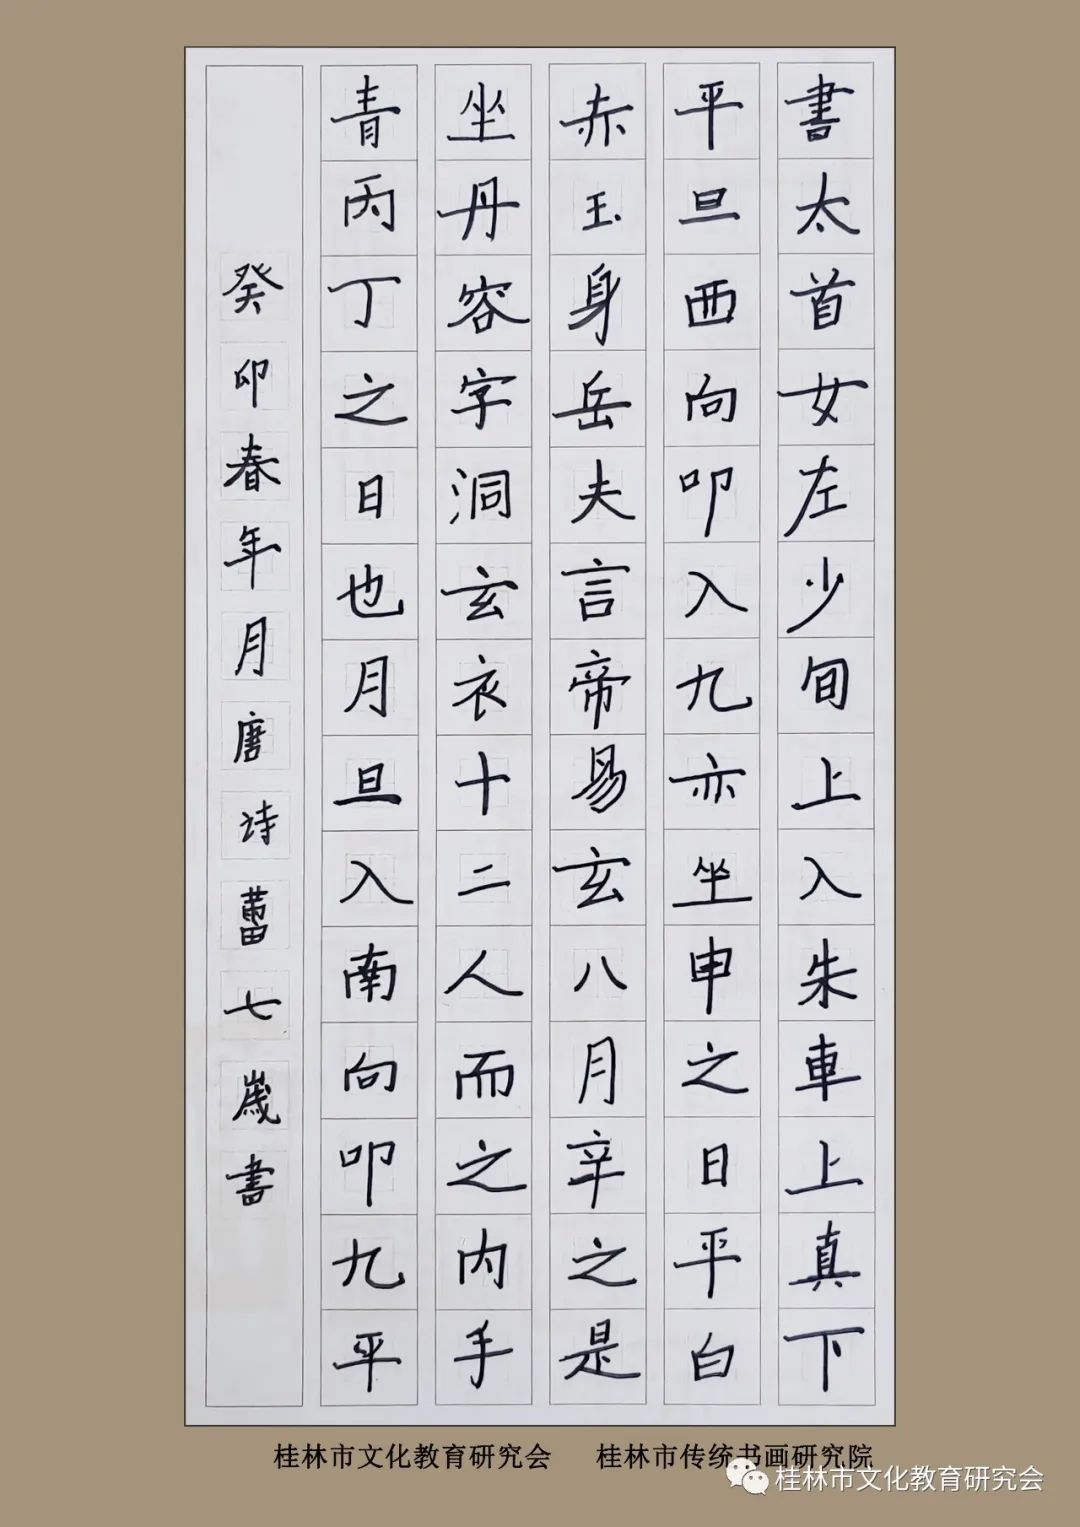 書太首女左少旬上入朱車上真下
平旦西向叩入九亦坐申之日平白
赤玉身岳夫言帝易玄八月辛之是
坐丹容字洞玄衣十二人而之内手
青丙丁之日也月旦入南向叩九平
癸卯春年月唐诗蕾七歲書
桂林市文化教育研究会 桂林市传统书画研究院
桂林市文化教育研究会